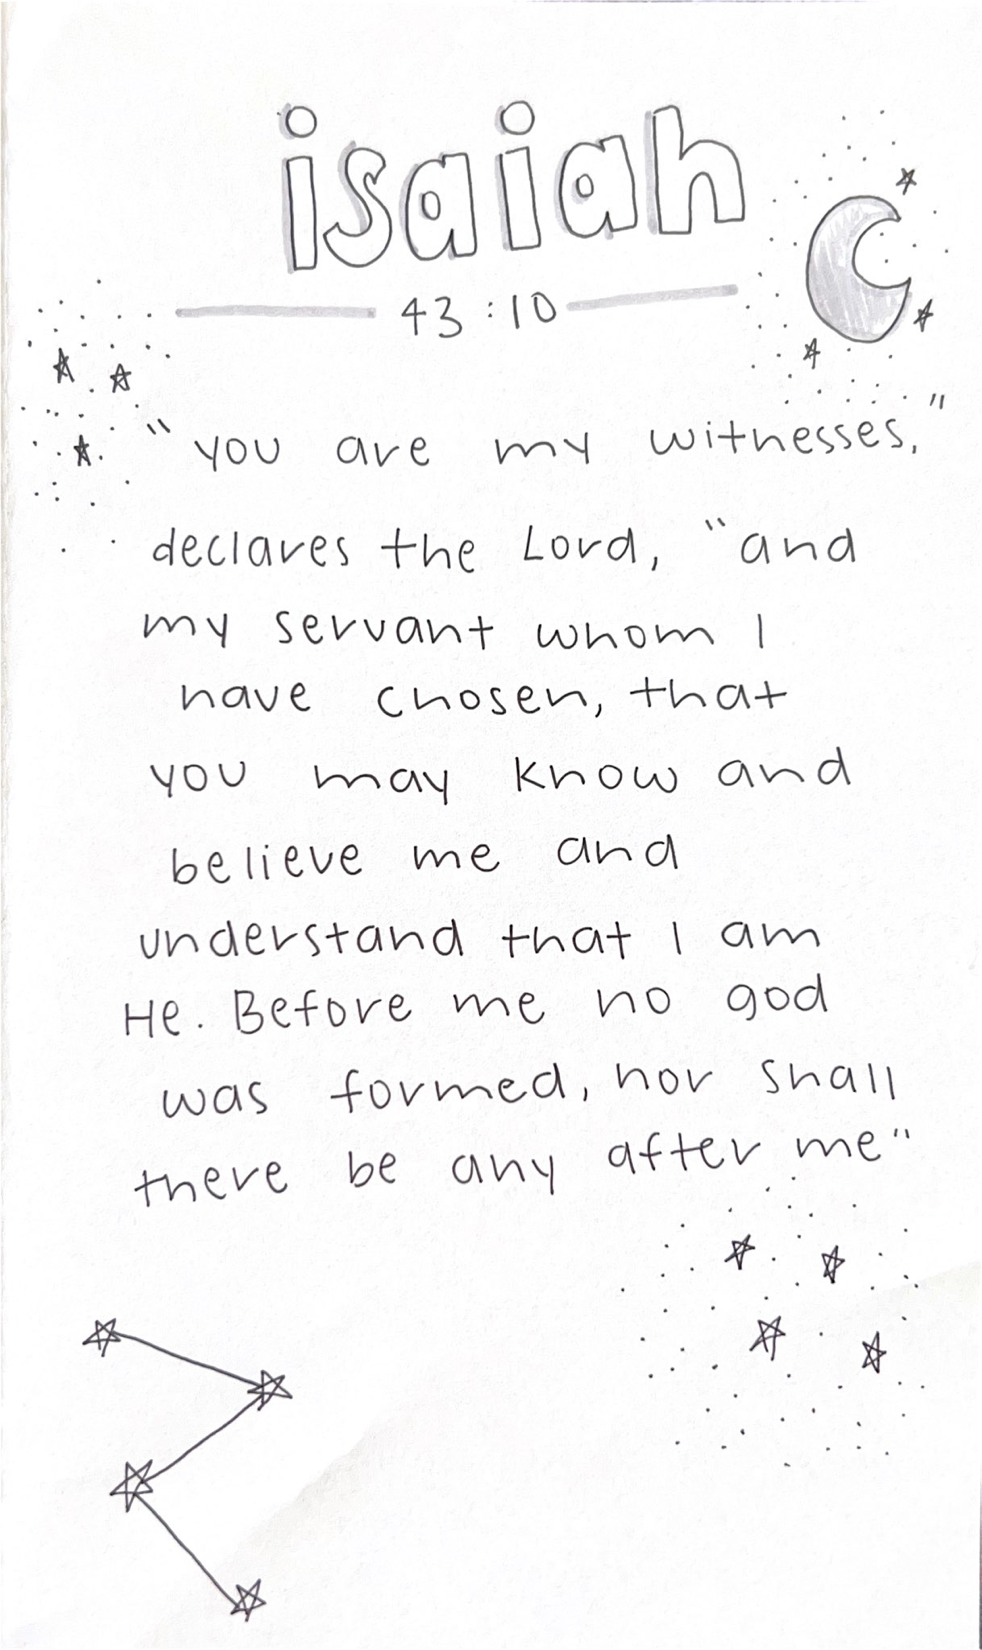 isaiah
43:10
"you are my witnesses,"
declares the Lord, "and
my servant whom I
have chosen, that
you may know and
believe me and
understand that I am
He. Before me no god
was formed, nor shall
there be any after me"